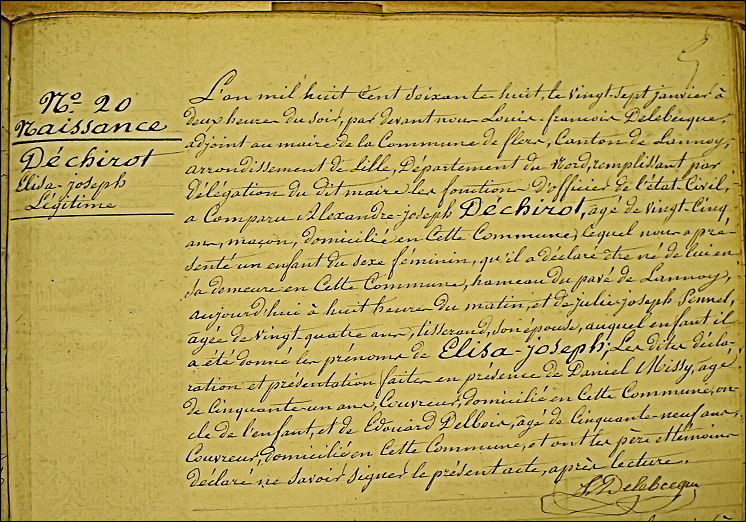 No. 20
Naissance
Déchirot
Elisa-joseph
Légitime
L'an mil huit cent soixante huit, le vingt-sept janvier à
deux heures du soir, par devant nous Louis-françois Delebecque,
adjoint au maire de la Commune de flers, Canton de Lannoy,
arrondissement de Lille, Département du Nord, remplissant par
délégation du dit maire les fonctions d'officier de l'état-Civil,
a Comparu Alexandre-joseph Déchirot, âgé de vingt-Cinq
ans, maçon, domicilié en Cette Commune, lequel nous a pré-
senté un enfant du sexe féminin, qu'il a déclaré être né de lui en
sa demeure en Cette Commune, hameau du pavé de Lannoy,
aujourd'hui à huit heures du matin, et de julie-joseph Pennel,
âgée de vingt-quatre ans, tisserand, son épouse, auquel enfant il
a été donné les prénoms de Elisa-joseph; Les dites décla-
ration et présentation faites en présence de Daniel Missy, âgé
de Cinquante-un ans, Couvreur, domicilié en Cette Commune, on-
cle de l'enfant, et de Edouard Delbois, âgé de Cinquante-neuf ans,
Couvreur, domicilié en Cette Commune, et ont les père et témoins
déclaré ne savoir signer le présent acte, après lecture.
L. Delebecque